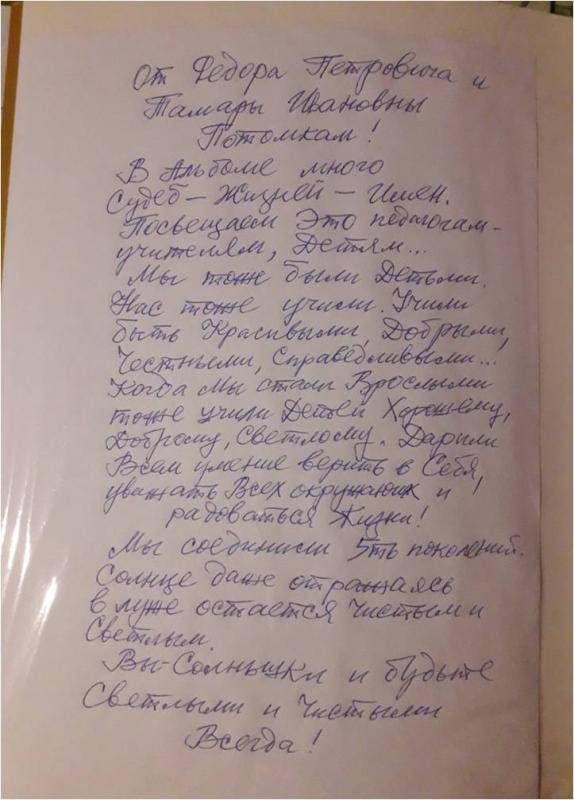 От Федора Петровича и
Тамары Ивановны
Потомкам!
В Альбоме много
Судеб – Жизней – Имен.
Посвещаем Это педагогам –
учителям, Детям...
Мы тоже были Детьми.
Нас тоже учили. Учили
быть Красивыми, Добрыми,
Честными, Справедливыми...
Когда Мы стали Взрослыми
тоже учили Детей Хорошему,
Доброму, Светлому. Дарили
Всем умение верить в Себя,
уважать Всех окружающих и
радоваться Жизни!
Мы соединили 5ть поколений.
Солнце даже отражаясь
в луже остается Чистым и
Светлым.
Вы – Солнышки и будьте
Светлыми и Чистыми
Всегда!